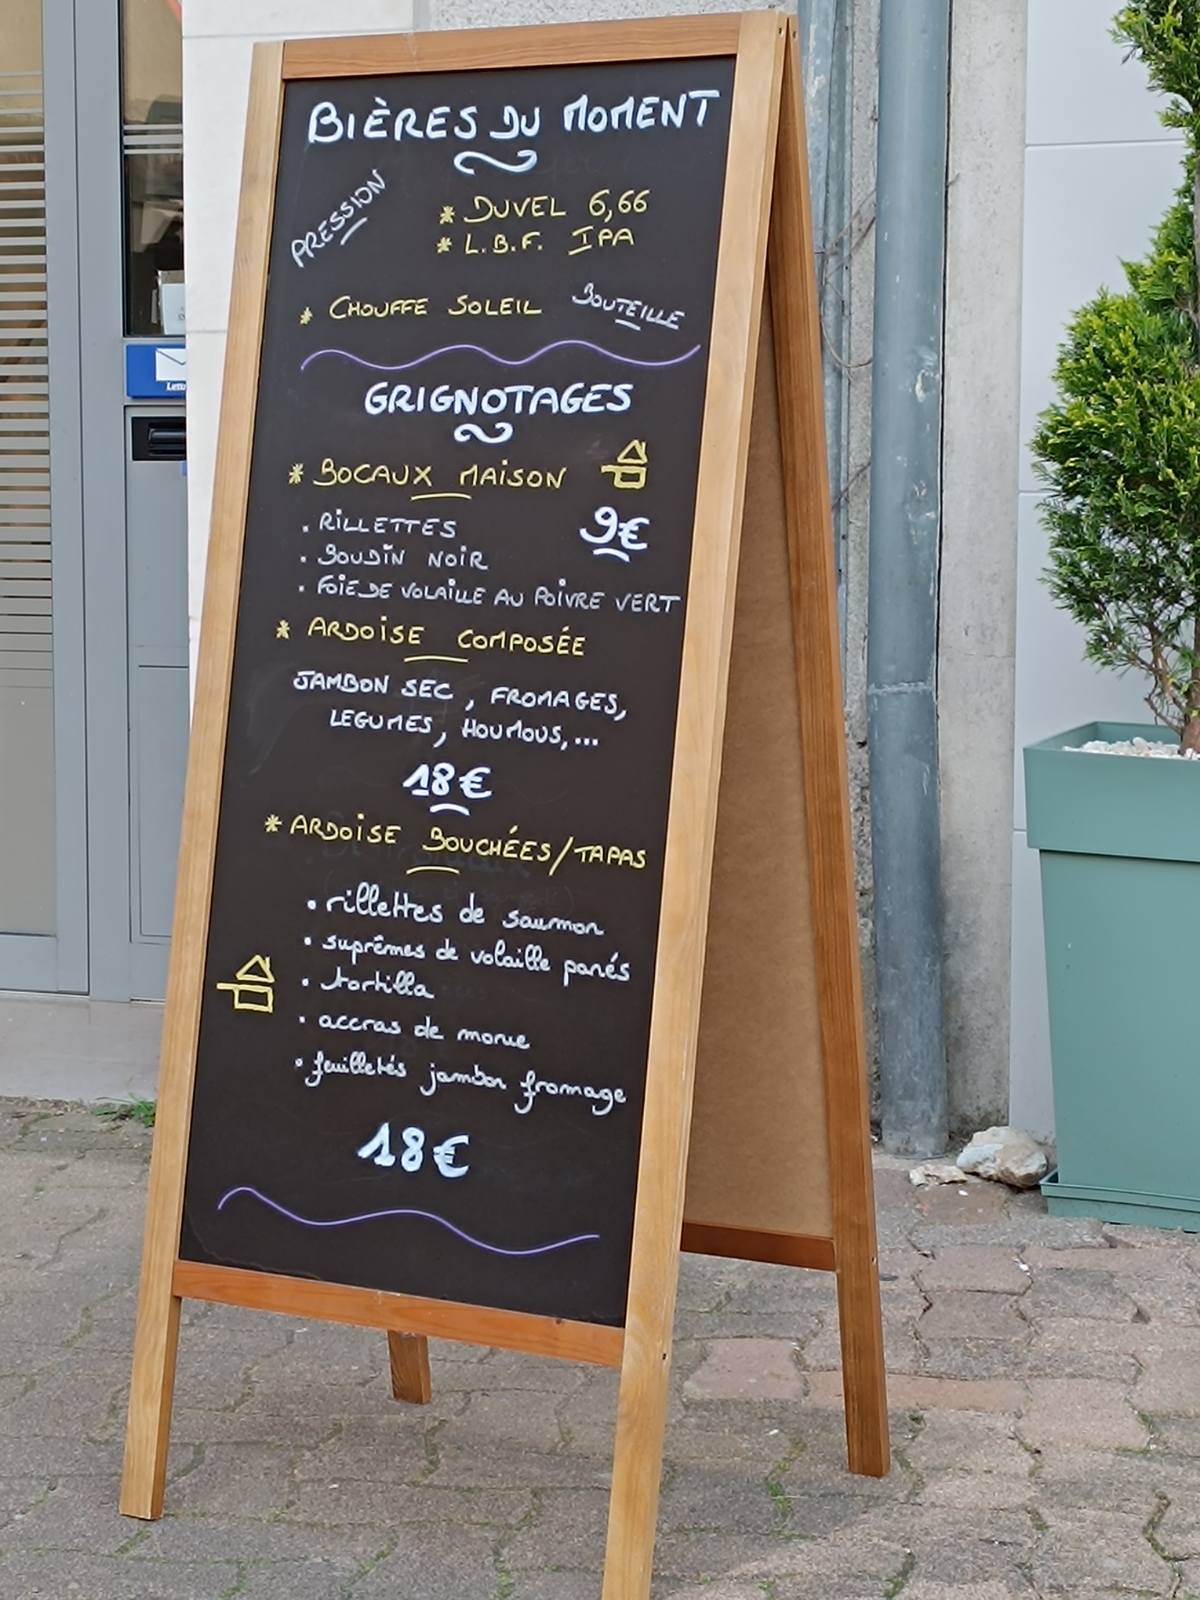 BIÈRES DU MOMENT
PRESSION
* DUVEL 6,66
* L.B.F. IPA
* CHOUFFE SOLEIL BOUTEILLE
GRIGNOTAGES
* BOCAUX MAISON
. RILLETTES 9€
. BOUDIN NOIR
. FOIE DE VOLAILLE AU POIVRE VERT
* ARDOISE COMPOSÉE
JAMBON SEC, FROMAGES,
LEGUMES, HOUMOUS,...
18€
* ARDOISE BOUCHÉES/TAPAS
. rillettes de saumon
. suprêmes de volaille panés
. tortilla
. accras de morue
. feuilletés jambon fromage
18€